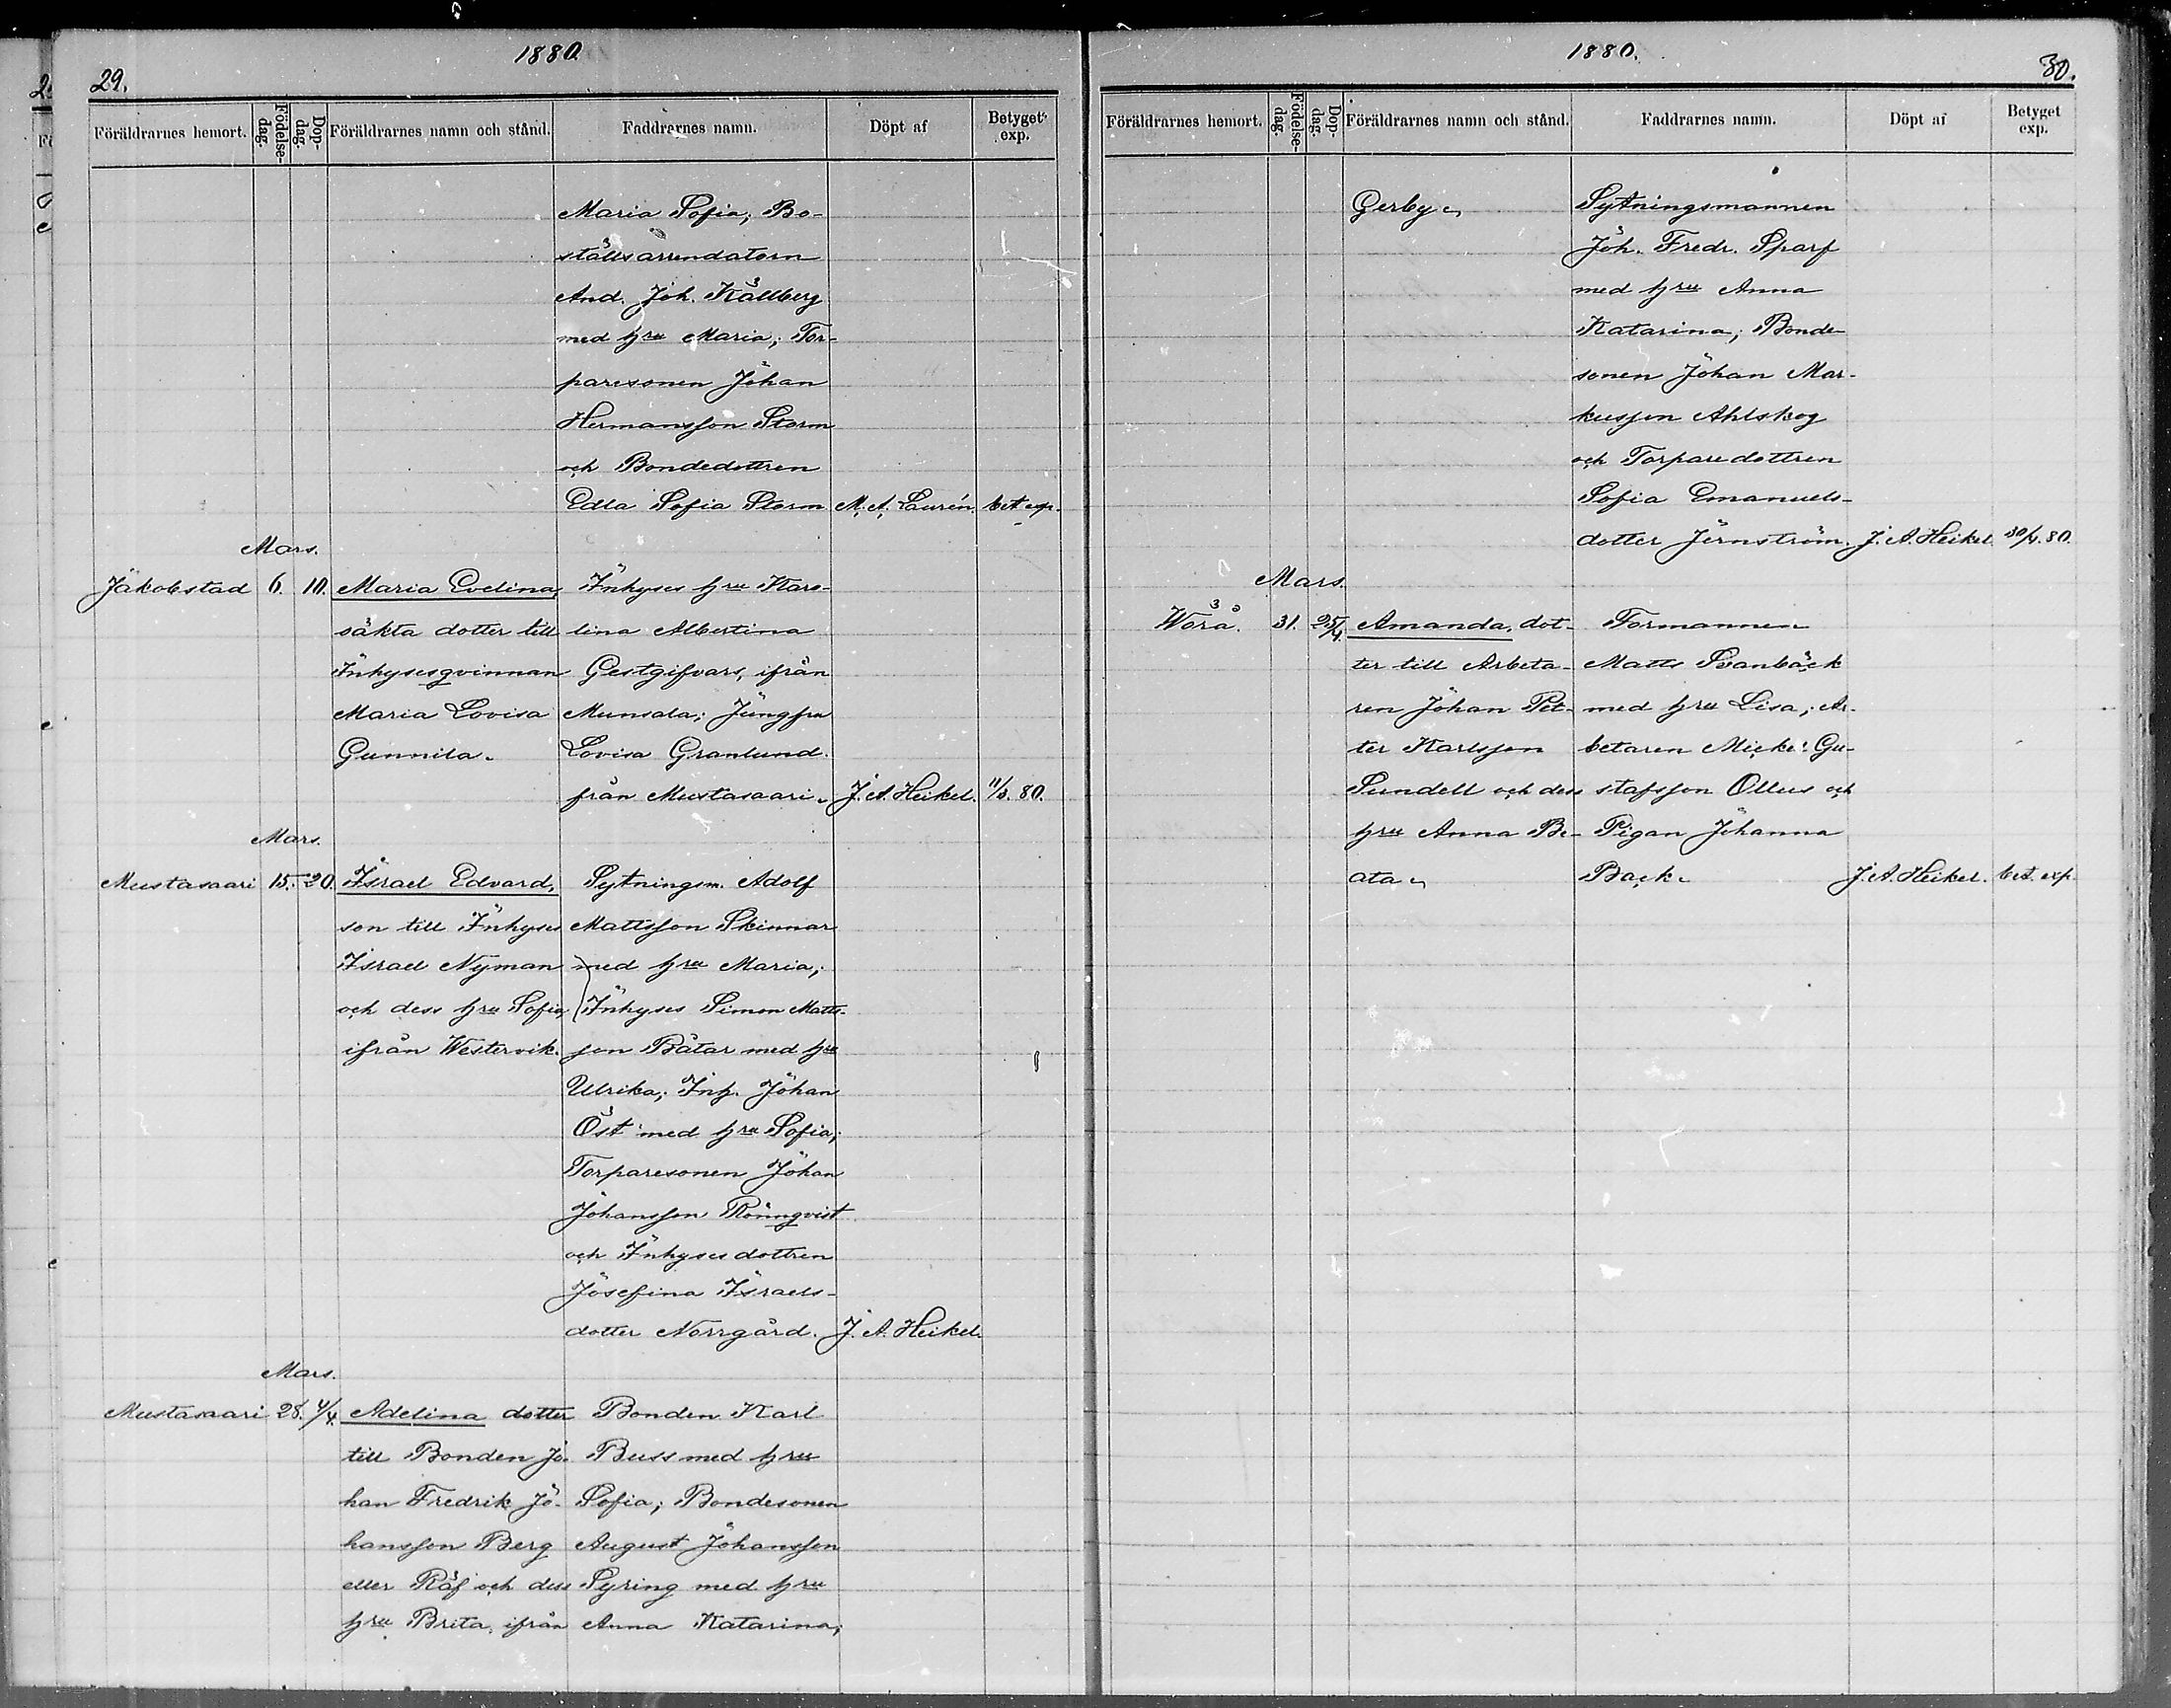 1880.
29.
Föräldrarnes hemort. Födelse-dag. Dop-dag. Föräldrarnes namn och stånd. Faddrarnes namn. Döpt af Betyget exp.
Maria Sofia; Bo-
ställsarrendatorn
And. Joh. Källberg
med hru Maria; Tor-
paresonen Johan
Hermansson Storm
och Bondedottren
Edla Sofia Storm M. A. Laurén. bet exp.
Mars.
Jakobstad 6. 10. Maria Evelina, Inhyses hru Karo-
oäkta dotter till lina Albertina
Inhysesqvinnan Gestgifvars, ifrån
Maria Lovisa Munsala; Jungfru
Gunnila. Lovisa Granlund
från Mustasaari. J. A. Heikel. 11/3. 80.
Mars.
Mustasaari 15. 20. Israel Edvard, Sytningsm. Adolf
son till Inhyses Mattsson Skinnar
Israel Nyman med hru Maria;
och dess hru Sofia, Inhyses Simon Matts-
ifrån Westervik. son Båtar med hru
Ulrika; Inh. Johan
Öst med hru Sofia;
Torparesonen Johan
Johansson Rönnqvist
och Inhyses dottren
Josefina Israels-
dotter Norrgård. J. A. Heikel.
Mars.
Mustasaari 28. 4/4. Adelina dotter Bonden Karl
till Bonden Jo- Buss med hru
han Fredrik Jo- Sofia; Bondesonen
hansson Berg August Johansson
eller Räf och dess Syring med hru
hru Brita, ifrån Anna Katarina;
1880.
30.
Föräldrarnes hemort. Födelse-dag. Dop-dag. Föräldrarnes namn och stånd. Faddrarnes namn. Döpt af Betyget exp.
Gerby. Sytningsmannen
Joh. Fredr. Sparf
med hru Anna
Katarina; Bonde-
sonen Johan Mar-
kusson Ahlskog
och Torparedottren
Sofia Emanuels-
dotter Jernström. J. A. Heikel. 30/4. 80.
Mars.
Wörå. 31. 25/4. Amanda, dot- Formannen
ter till Arbeta- Matts Svanbäck
ren Johan Pet- med hru Lisa; Ar-
ter Karlsson betaren Mickel Gu-
Sundell och dess stafsson Ollus och
hru Anna Be- Pigan Johanna
ata. Back. J. A. Heikel. bet. exp.